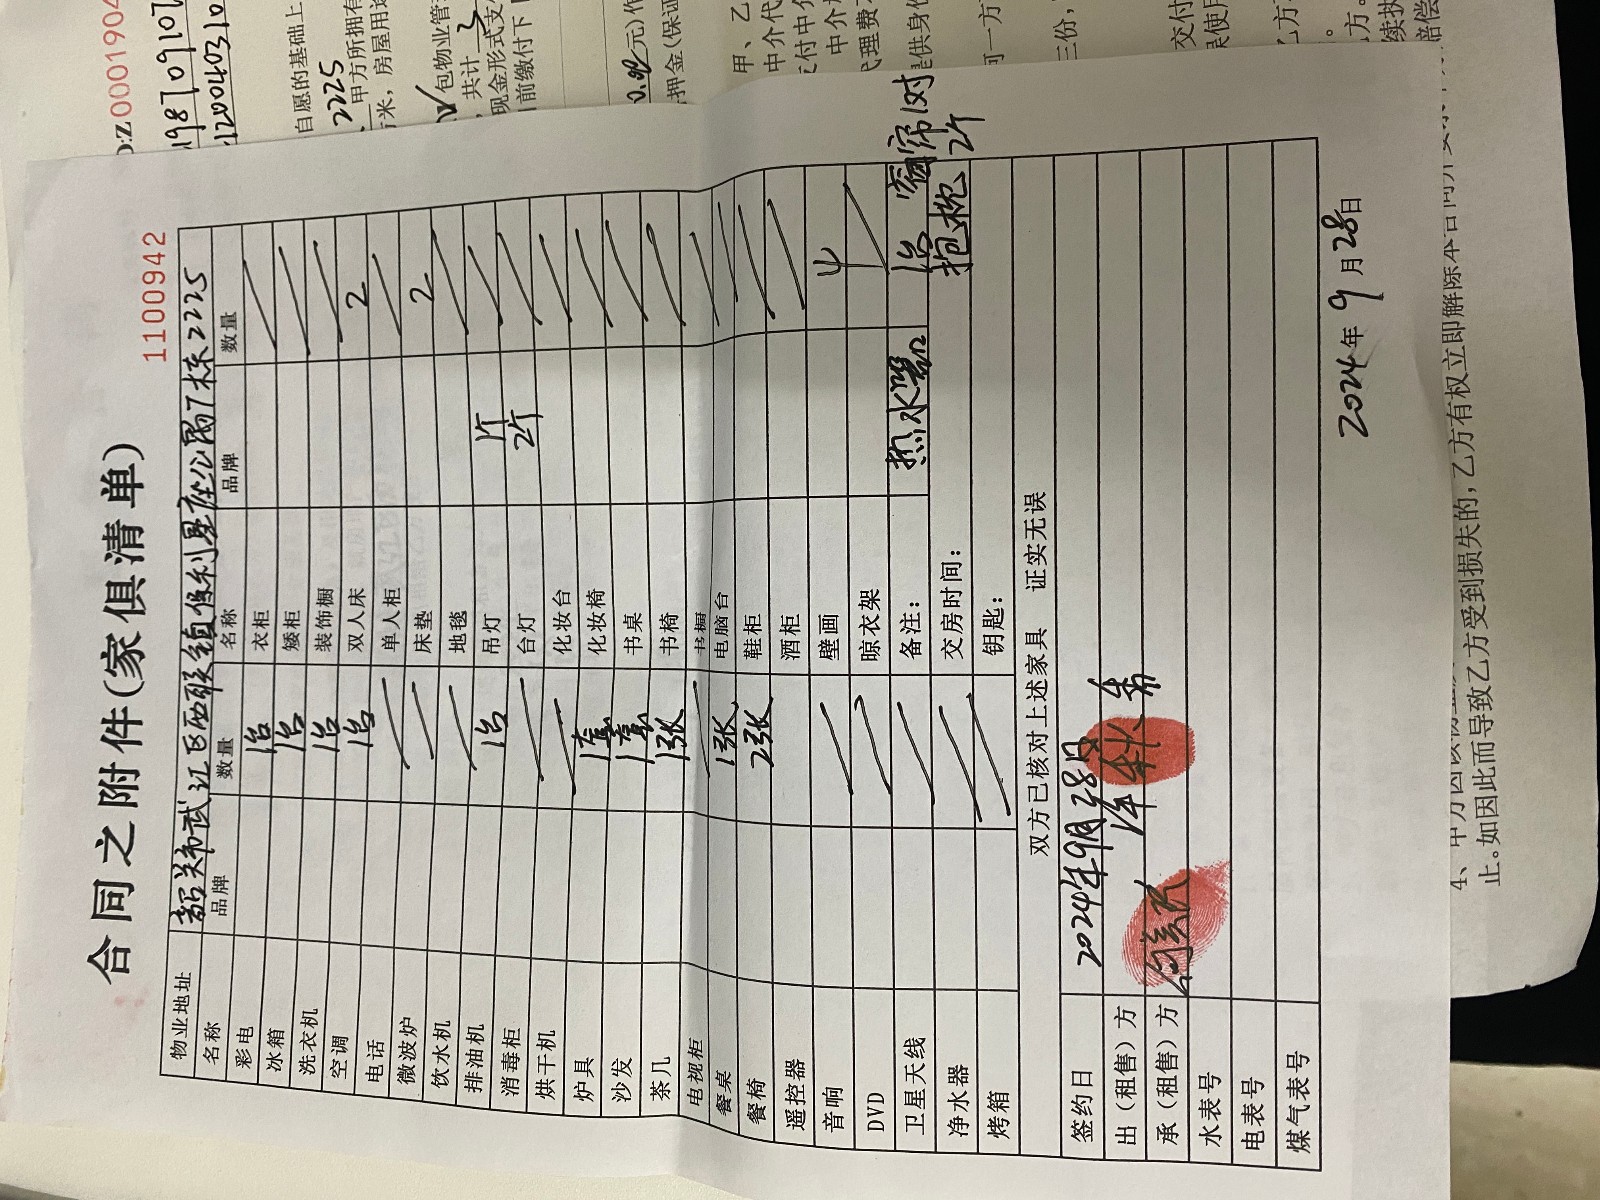 合同之附件(家俱清单)
1100942
物业地址 韶关市武江区西联镇保利星座公寓7栋2225
名称 品牌 数量 名称 品牌 数量
彩电 1台 衣柜
冰箱 1台 矮柜
洗衣机 1台 装饰橱
空调 1台 双人床 2
电话 单人柜
微波炉 床垫 2
饮水机 地毯
排油机 1台 吊灯 1个
消毒柜 台灯 2个
烘干机 化妆台
炉具 1套 化妆椅
沙发 1套 书桌
茶几 1张 书椅
电视柜 书橱
餐桌 1张 电脑台
餐椅 2张 鞋柜
遥控器 酒柜
音响 壁画 4
DVD 晾衣架
卫星天线 备注: 热水器 1台 窗帘1对
净水器 交房时间: 抱枕 2个
烤箱 钥匙:
双方已核对上述家具 证实无误
签约日 2024年9月28日
出(租售)方
承(租售)方
水表号
电表号
煤气表号
2024年9月28日
Z0001904
2225
自愿的基础上
甲方所拥有
米,房屋用途
包物业管
共计
现金形式支付
前缴付下
押金(保证
中介代
支付中介
代理费
提供身份
三份,
止。如因此而导致乙方受到损失的,乙方有权立即解除本合同并要求